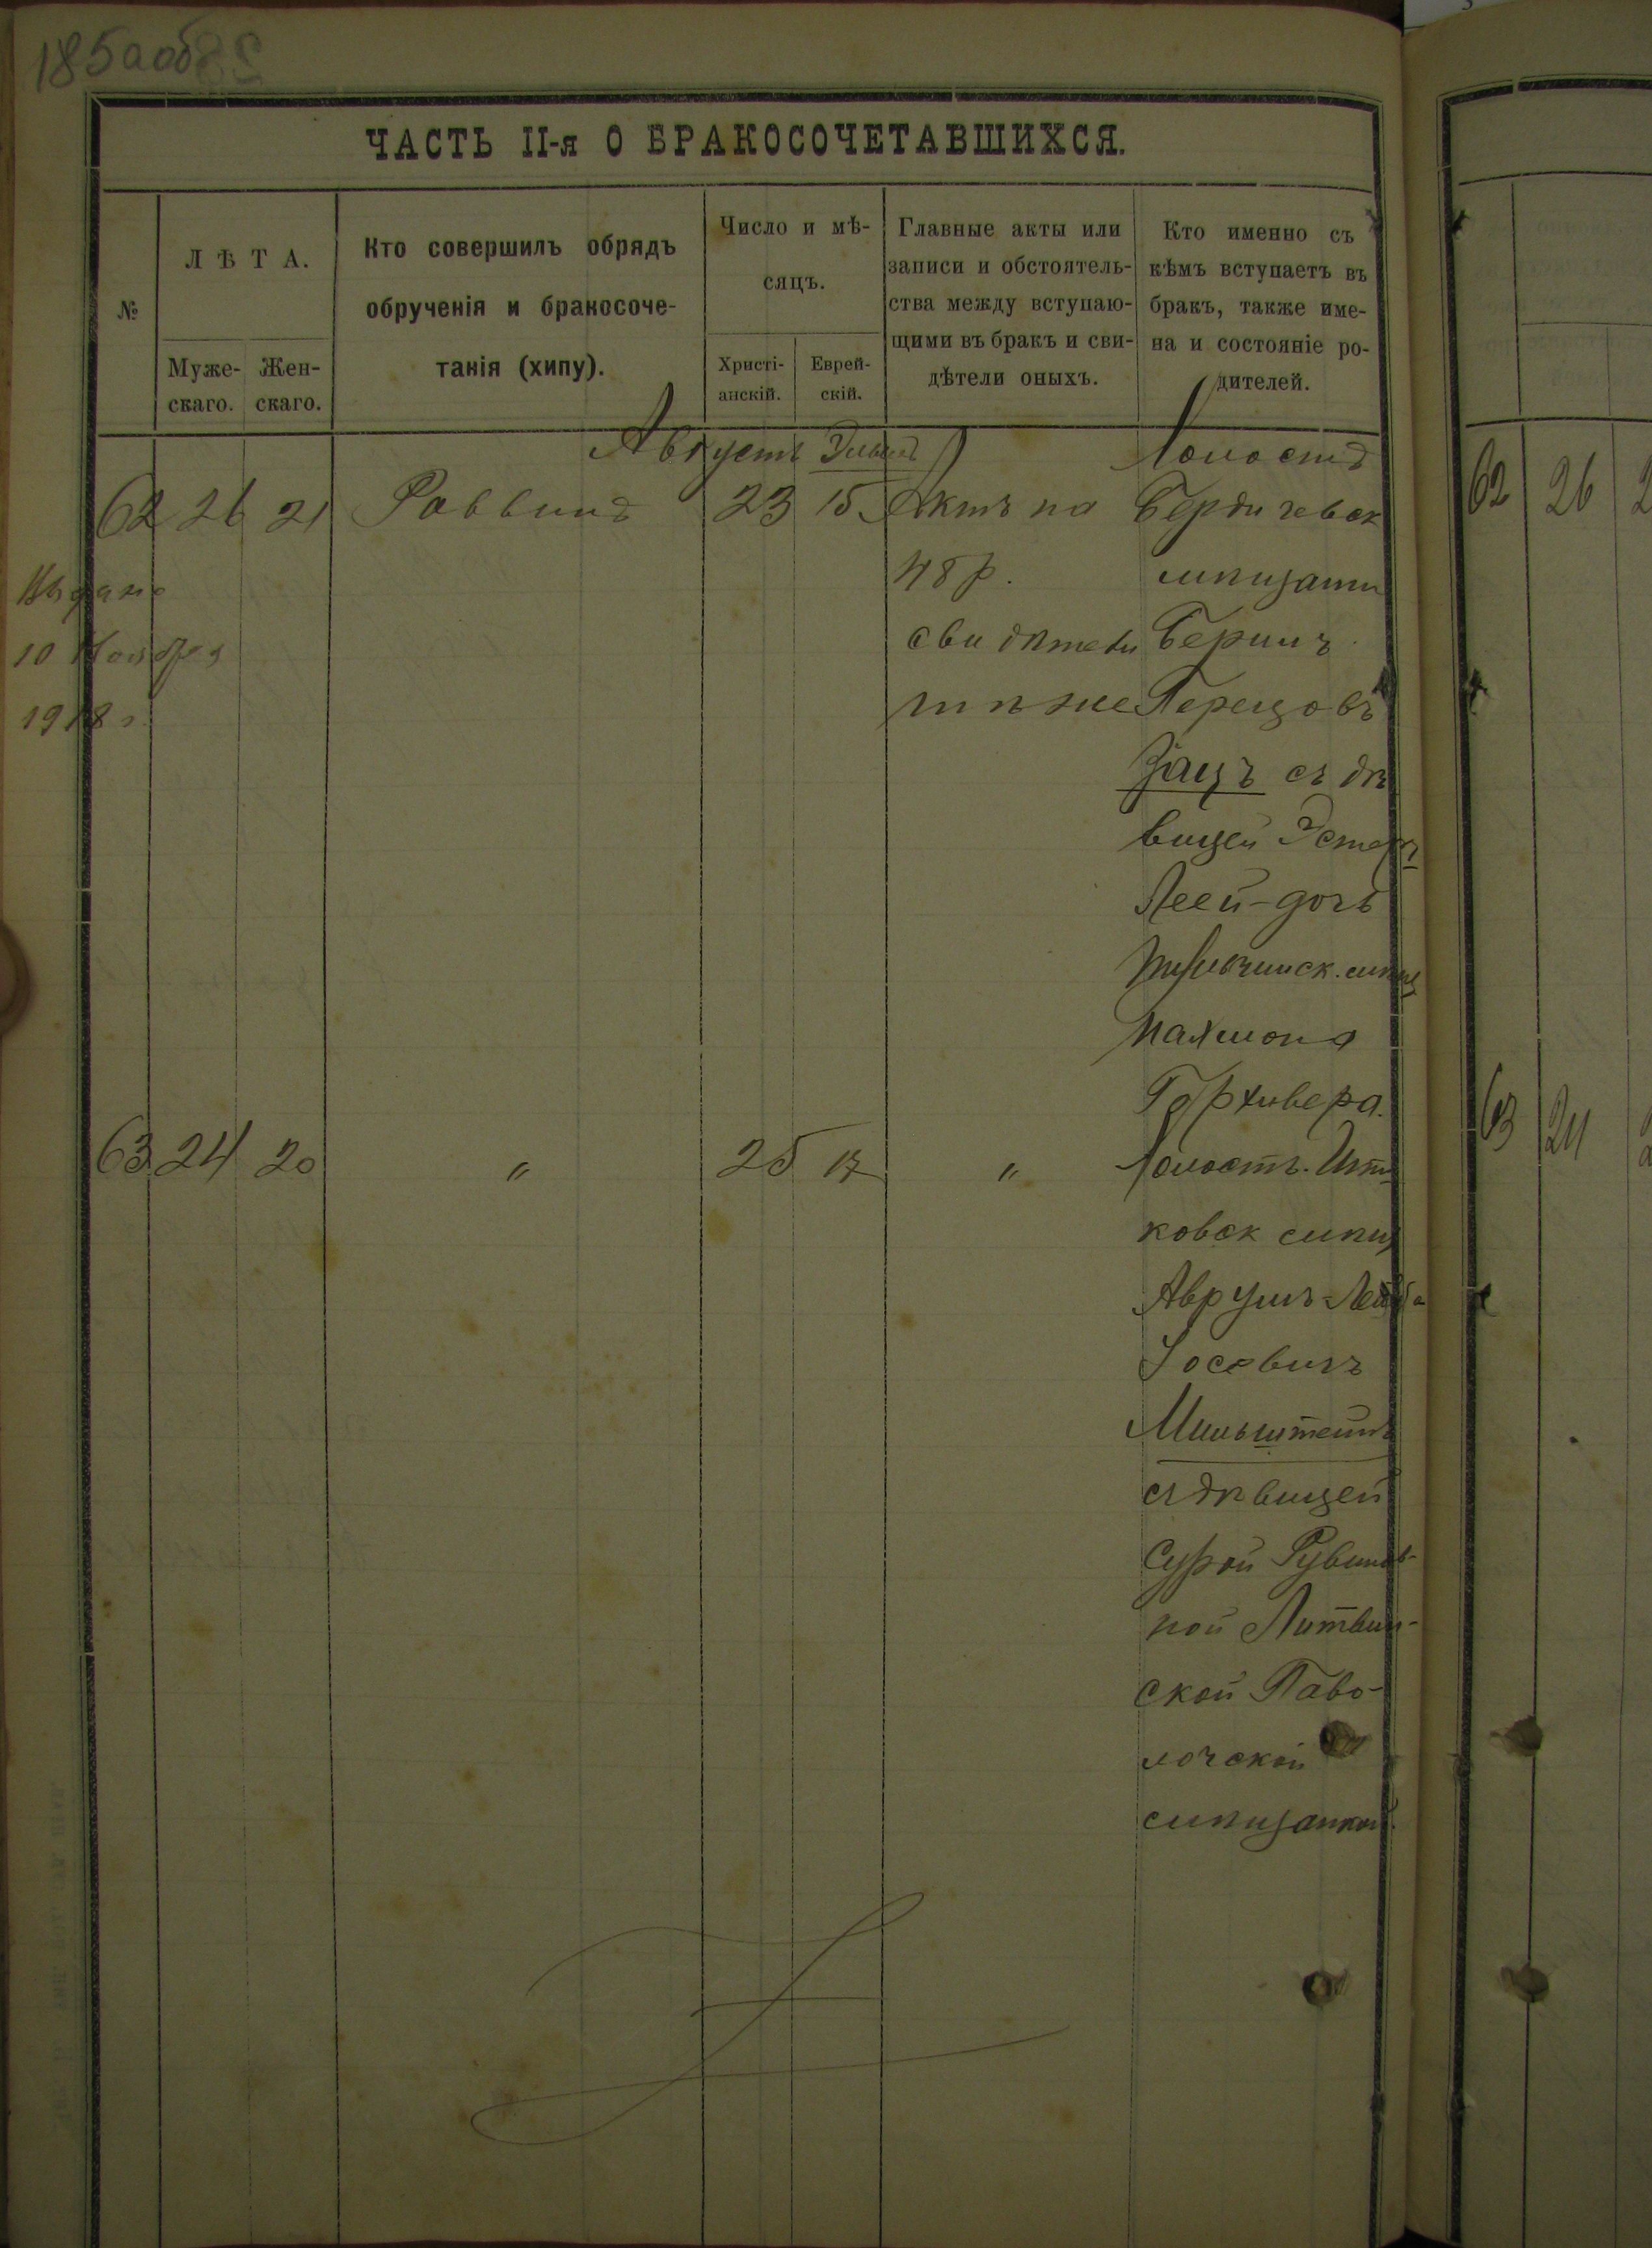 185а об
ЧАСТЬ II-я О БРАКОСОЧЕТАВШИХСЯ.
№
ЛѢТА.
Муже-
скаго.
Жен-
скаго.
Кто совершилъ обрядъ
обрученія и бракосоче-
танія (хипу).
Число и мѣ-
сяцъ.
Христі-
анскій.
Еврей-
скій.
Главные акты или
записи и обстоятель-
ства между вступаю-
щими въ бракъ и сви-
дѣтели оныхъ.
Кто именно съ
кѣмъ вступаетъ въ
бракъ, также име-
на и состояніе ро-
дителей.
Августъ
62 26 21 Раввинъ 23 15 Актъ на
48 р.
свидѣтели
тѣ же
Холостъ
Бердичевск
мѣщанин
Перецовъ
Зацъ съ дѣ
вицей Эстеръ
Леей-дочь
Нахмона
Выдано
10 Ноября
1918 г.
63 24 20 " 25 17 "
Холостъ
ковск мѣщ
Аврумъ-Лейба
Іосевичъ
Мильштейнъ
съ дѣвицей
Сурой Рувинов-
ной Литвин-
ской Паво-
лочской
мѣщанкой.
62 26
63 24